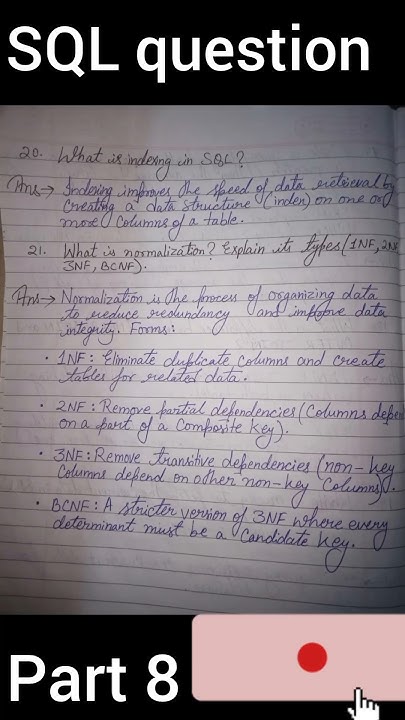 SQL question
20. What is indexing in SQL?
Ans→ Indexing improves the speed of data retrieval by
creating a data structure (index) on one or
more columns of a table.
21. What is normalization? Explain its types (1NF, 2NF
3NF, BCNF).
Ans→ Normalization is the process of organizing data
to reduce redundancy and improve data
integrity. Forms:
• 1NF: Eliminate duplicate columns and create
tables for related data.
• 2NF: Remove partial dependencies (Columns depen
on a part of a Composite key).
• 3NF: Remove transitive dependencies (non-key
Columns depend on other non-key Columns).
• BCNF: A stricter version of 3NF where every
determinant must be a Candidate key.
Part 8